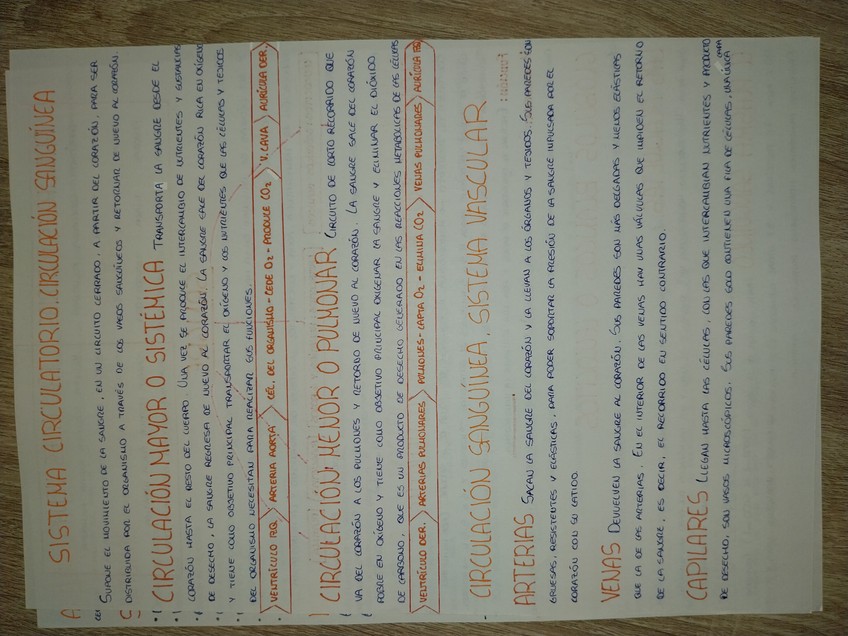 SISTEMA CIRCULATORIO. CIRCULACIÓN SANGUÍNEA
SUPONE EL MOVIMIENTO DE LA SANGRE, EN UN CIRCUITO CERRADO, A PARTIR DEL CORAZÓN, PARA SER
DISTRIBUIDA POR EL ORGANISMO A TRAVÉS DE LOS VASOS SANGUÍNEOS Y RETORNAR DE NUEVO AL CORAZÓN.
CIRCULACIÓN MAYOR O SISTÉMICA TRANSPORTA LA SANGRE DESDE EL
CORAZÓN HASTA EL RESTO DEL CUERPO. UNA VEZ SE PRODUCE EL INTERCAMBIO DE NUTRIENTES Y SUSTANCIAS
DE DESECHO, LA SANGRE REGRESA DE NUEVO AL CORAZÓN. LA SANGRE SALE DEL CORAZÓN RICA EN OXÍGENO
Y TIENE COMO OBJETIVO PRINCIPAL TRANSPORTAR EL OXÍGENO Y LOS NUTRIENTES QUE LAS CÉLULAS Y TEJIDOS
DEL ORGANISMO NECESITAN PARA REALIZAR SUS FUNCIONES.
VENTRÍCULO IZQ. ARTERIA AORTA CÉL. DEL ORGANISMO - CEDE O2 - PRODUCE CO2 V. CAVA AURÍCULA DER.
CIRCULACIÓN MENOR O PULMONAR CIRCUITO DE CORTO RECORRIDO QUE
VA DEL CORAZÓN A LOS PULMONES Y RETORNO DE NUEVO AL CORAZÓN. LA SANGRE SALE DEL CORAZÓN
POBRE EN OXÍGENO Y TIENE COMO OBJETIVO PRINCIPAL OXIGENAR LA SANGRE Y ELIMINAR EL DIÓXIDO
DE CARBONO, QUE ES UN PRODUCTO DE DESECHO GENERADO EN LAS REACCIONES METABÓLICAS DE LAS CÉLULAS
VENTRÍCULO DER. ARTERIAS PULMONARES PULMONES - CAPTA O2 - ELIMINA CO2 VENAS PULMONARES AURÍCULA IZQ.
CIRCULACIÓN SANGUÍNEA. SISTEMA VASCULAR
ARTERIAS SACAN LA SANGRE DEL CORAZÓN Y LA LLEVAN A LOS ÓRGANOS Y TEJIDOS. SUS PAREDES SON
GRUESAS, RESISTENTES Y ELÁSTICAS, PARA PODER SOPORTAR LA PRESIÓN DE LA SANGRE IMPULSADA POR EL
CORAZÓN CON SU LATIDO.
VENAS DEVUELVEN LA SANGRE AL CORAZÓN. SUS PAREDES SON MÁS DELGADAS Y MENOS ELÁSTICAS
QUE LA DE LAS ARTERIAS. EN EL INTERIOR DE LAS VENAS HAY UNAS VÁLVULAS QUE IMPIDEN EL RETORNO
DE LA SANGRE, ES DECIR, EL RECORRIDO EN SENTIDO CONTRARIO.
CAPILARES LLEGAN HASTA LAS CÉLULAS, CON LAS QUE INTERCAMBIAN NUTRIENTES Y PRODUCTO
DE DESECHO, SON VASOS MICROSCÓPICOS. SUS PAREDES SOLO CONTIENEN UNA FILA DE CÉLULAS, UNA ÚNICA CAPA